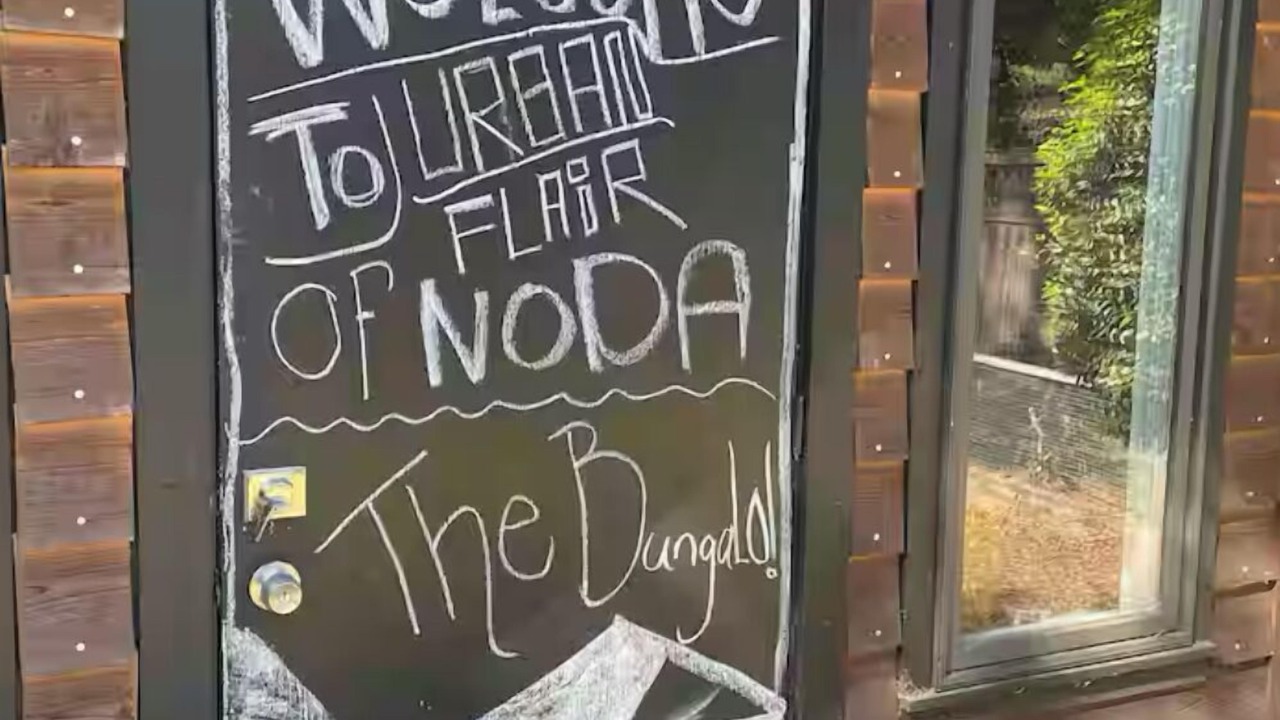 WELCOME
TO URBAN
FLAiR
OF NODA
The BungaLO!